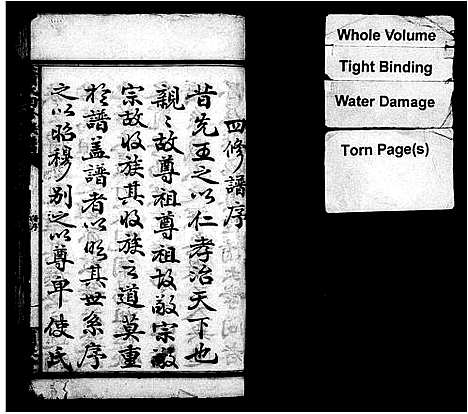 四修譜序
昔先王之以仁孝治天下也
親〻故尊祖尊祖故敬宗敬
宗故收族其收族之道莫重
於譜盖譜者以明其世系序
之以昭穆別之以尊卑使氏
Whole Volume
Tight Binding
Water Damage
Torn Page(s)